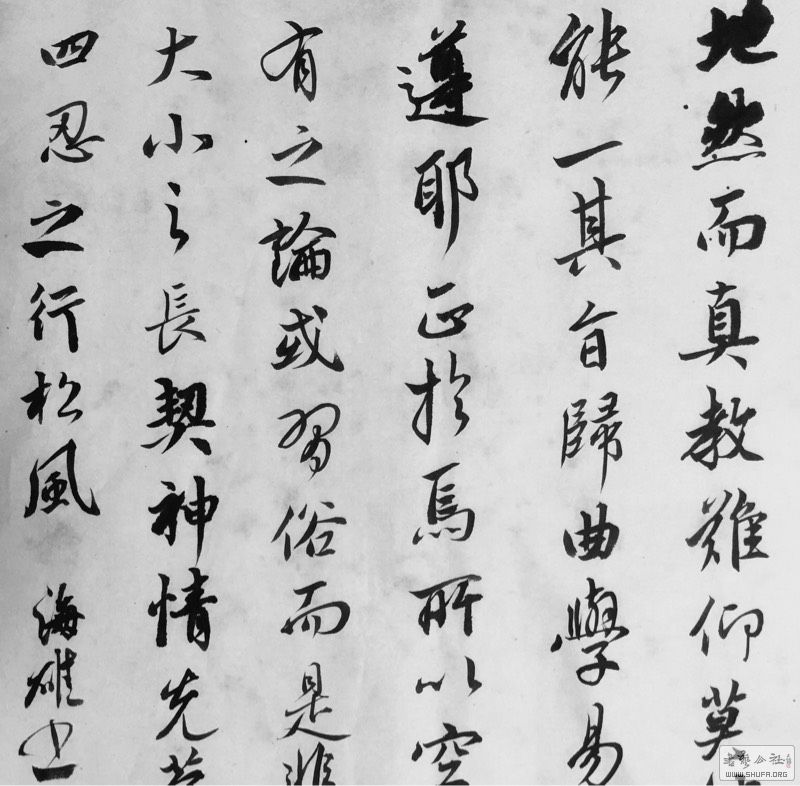 地然而真教難仰莫
能一其旨歸曲學易
遵耶正於焉所以空
有之論或習俗而是非
大小之長契神情先苞
四忍之行松風
海雄书
WWW.SHUFA.ORG